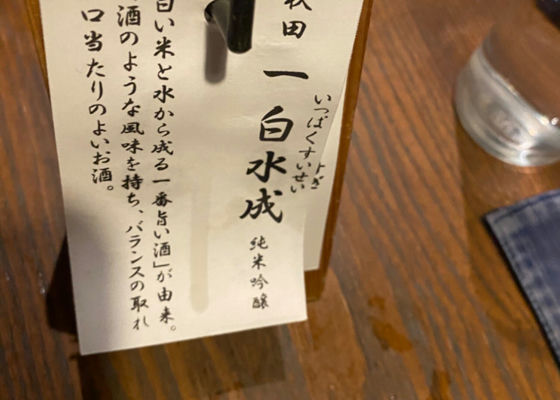 秋田
一白水成
いっぱくすいせい
純米吟醸
白い米と水から成る一番旨い酒」が由来。
酒のような風味を持ち、バランスの取れ
口当たりのよいお酒。